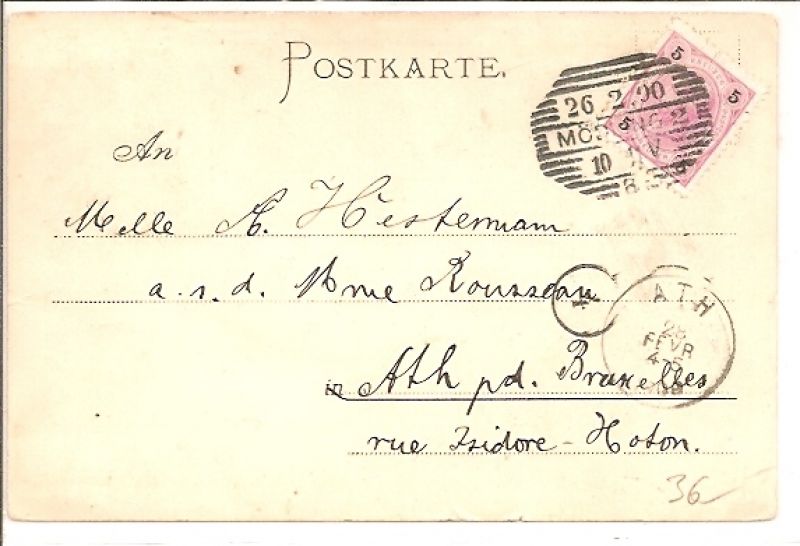 POSTKARTE.
5 5 5
26 2 00
MÖDLING 2
10 V
An
Melle A. Hestermam
a. s. d. Mme Rousseau
ATH
28
FEVR
4-5
in Ath pd. Bruxelles
rue Isidore-Hoton.
36